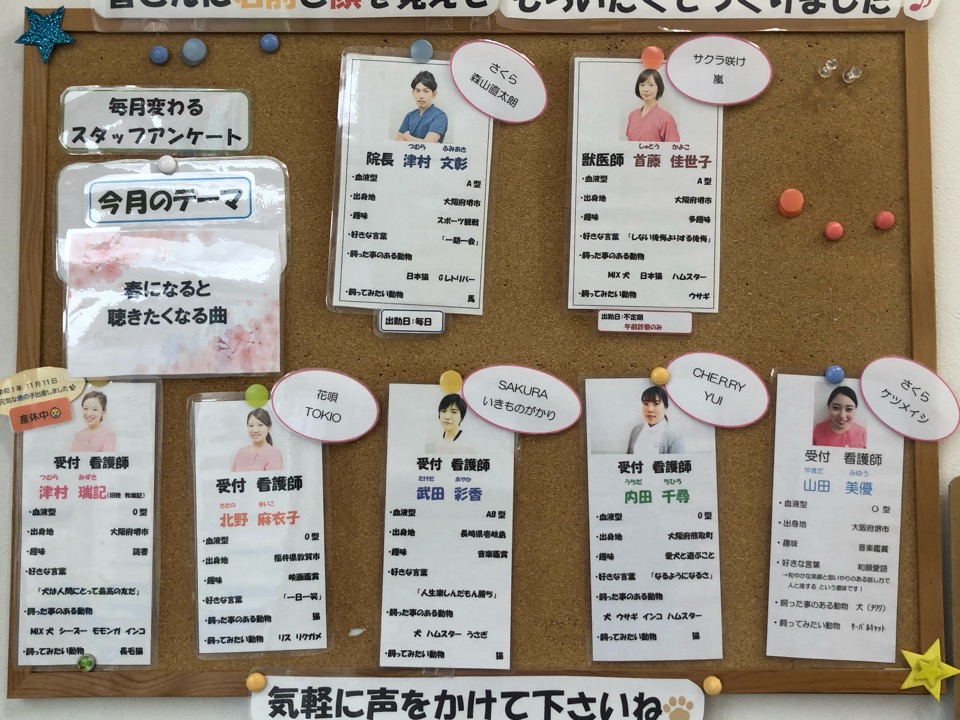 皆さんに名前と顔を覚えて
もらいたくてつくりました♪
毎月変わる
スタッフアンケート
今月のテーマ
春になると
聴きたくなる曲
さくら
森山直太朗
つむら ふみあき
院長 津村 文彰
・血液型 A型
・出身地 大阪府堺市
・趣味 スポーツ観戦
・好きな言葉 「一期一会」
・飼った事のある動物
日本猫 Gレトリバー
・飼ってみたい動物 馬
出勤日:毎日
サクラ咲け
嵐
しゅとう かよこ
獣医師 首藤 佳世子
・血液型 A型
・出身地 大阪府堺市
・趣味 多趣味
・好きな言葉 「しない後悔よりする後悔」
・飼った事のある動物
MIX犬 日本猫 ハムスター
・飼ってみたい動物 ウサギ
出勤日:不定期
午前診察のみ
令和1年 11月11日
元気な男の子出産しました
産休中
受付 看護師
つむら みずき
津村 瑞記
・血液型 O型
・出身地 大阪府堺市
・趣味 読書
・好きな言葉
「犬は人間にとって最高の友だ」
・飼った事のある動物
MIX犬 シーズー モモンガ インコ
・飼ってみたい動物 長毛猫
花唄
TOKIO
受付 看護師
きたの まいこ
北野 麻衣子
・血液型 O型
・出身地 福井県敦賀市
・趣味 映画鑑賞
・好きな言葉 「一日一笑」
・飼った事のある動物 猫
・飼ってみたい動物 リス リクガメ
SAKURA
いきものがかり
受付 看護師
たけだ あやか
武田 彩香
・血液型 AB型
・出身地 長崎県壱岐島
・趣味 音楽鑑賞
・好きな言葉
「人生楽しんだもん勝ち」
・飼った事のある動物
犬 ハムスター うさぎ
・飼ってみたい動物 猫
CHERRY
YUI
受付 看護師
うちだ ちひろ
内田 千尋
・血液型 O型
・出身地 大阪府熊取町
・趣味 愛犬と遊ぶこと
・好きな言葉 「なるようになるさ」
・飼った事のある動物
犬 ウサギ インコ ハムスター
・飼ってみたい動物 猫
さくら
ケツメイシ
受付 看護師
やまだ みゆう
山田 美優
・血液型 O型
・出身地 大阪府堺市
・趣味 音楽鑑賞
・好きな言葉 和顔愛語
→和やかな笑顔と思いやりのある話し方で
人と接する という意味です!
・飼った事のある動物 犬(チワワ)
・飼ってみたい動物 サーバルキャット
気軽に声をかけて下さいね